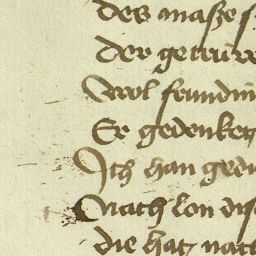 des masze s
der getruwe
Wol frundin
Er gedencket
Ich han gedi
Nach lon dis
die hat nach